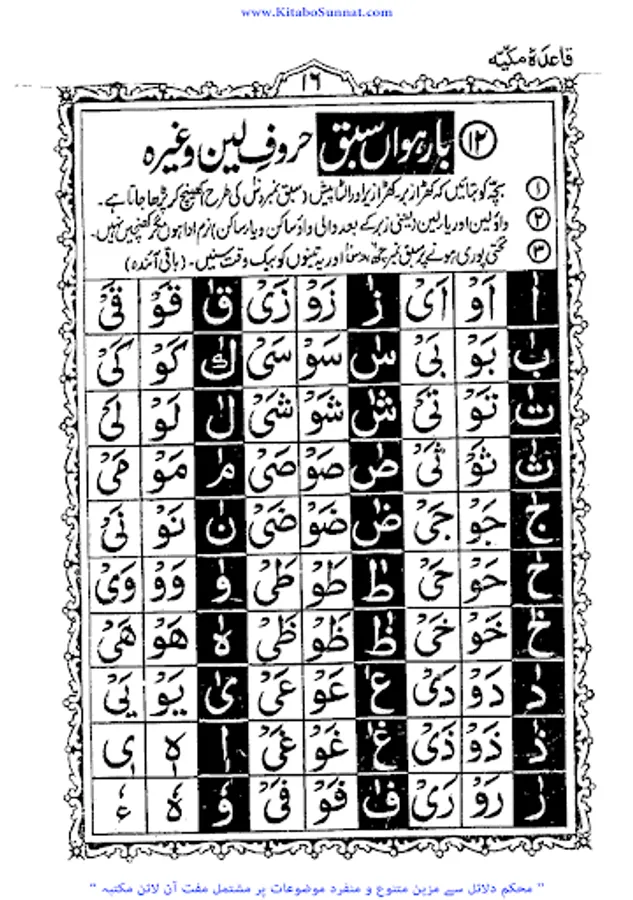 www.KitaboSunnat.com
قاعدہ مکیّہ
۱۶
۱۲ بارہواں سبق حروفِ لین وغیرہ
۱ بچّہ کو بتائیں کہ کھڑا زبر، کھڑا زیر اور الٹا پیش (سبق نمبر کی طرح) کھینچ کر پڑھا جاتا ہے۔
۲ واؤ لین اور یار لین (یعنی زبر کے بعد والی واؤ ساکن و یار ساکن) نرم ادا ہوں مگر کھنچیں نہیں۔
۳ تختی پوری ہونے پر سبق نمبر اور یہ تینوں کو بیک وقت سنیں۔ (باقی آئندہ)
اٰ اَوْ اَیْ زٰ زَوْ زَیْ قٰ قَوْ قَیْ
بٰ بَوْ بَیْ سٰ سَوْ سَیْ كٰ كَوْ كَیْ
تٰ تَوْ تَیْ شٰ شَوْ شَیْ لٰ لَوْ لَیْ
ثٰ ثَوْ ثَیْ صٰ صَوْ صَیْ مٰ مَوْ مَیْ
جٰ جَوْ جَیْ ضٰ ضَوْ ضَیْ نٰ نَوْ نَیْ
حٰ حَوْ حَیْ طٰ طَوْ طَیْ وٰ وَوْ وَیْ
خٰ خَوْ خَیْ ظٰ ظَوْ ظَیْ هٰ هَوْ هَیْ
دٰ دَوْ دَیْ عٰ عَوْ عَیْ یٰ یَوْ یَیْ
ذٰ ذَوْ ذَیْ غٰ غَوْ غَیْ اٖ هٖ یٖ
رٰ رَوْ رَیْ فٰ فَوْ فَیْ وٗ هٗ ءٗ
" محکم دلائل سے مزین متنوع و منفرد موضوعات پر مشتمل مفت آن لائن مکتبہ "